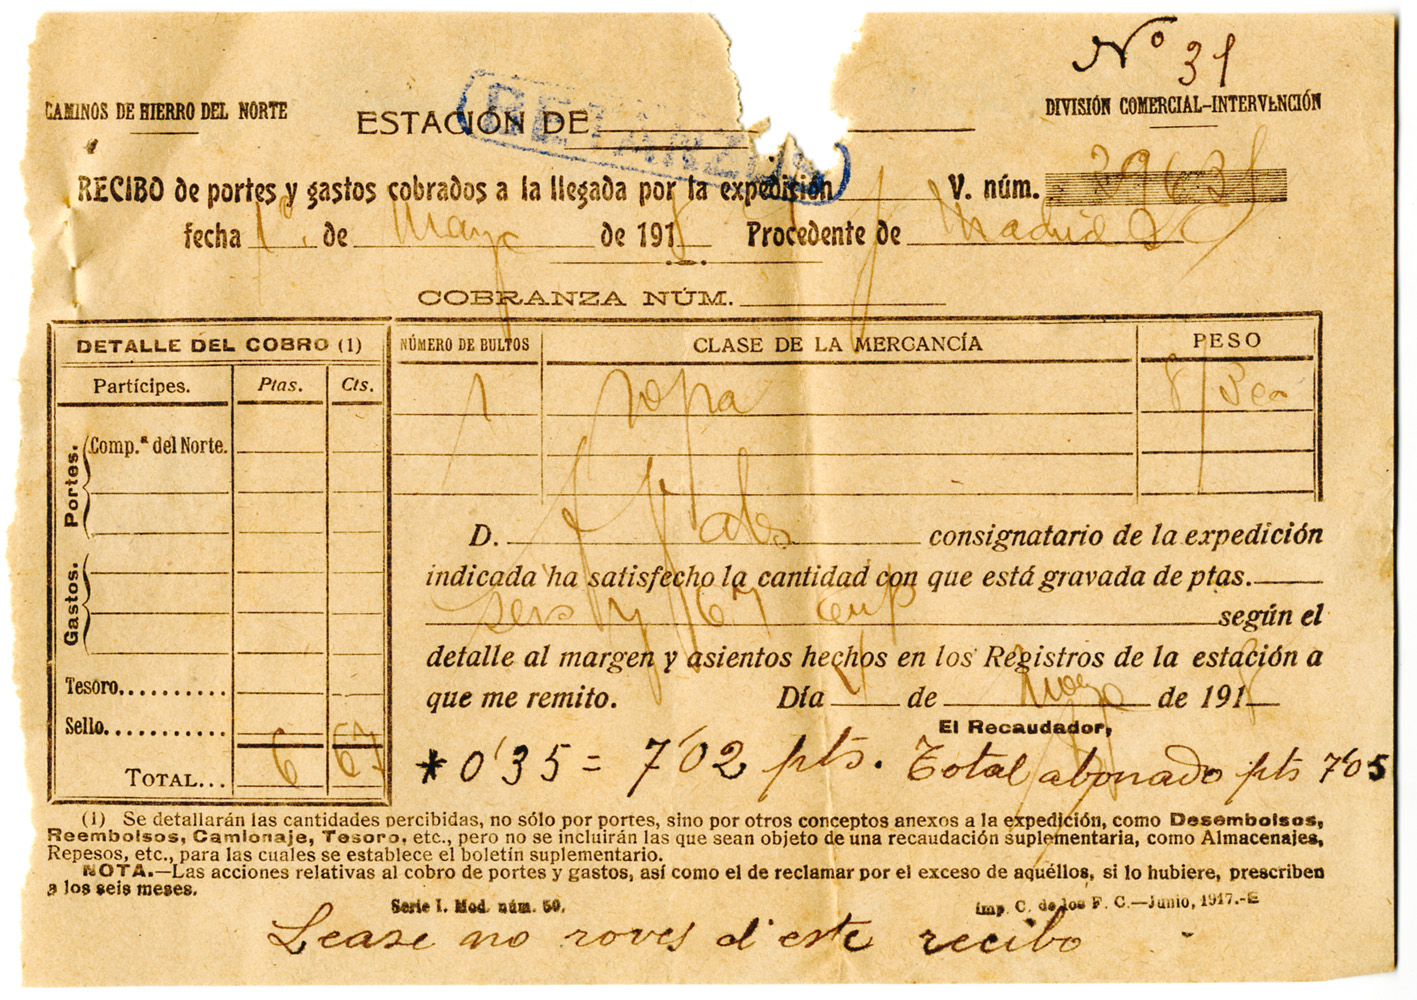 Nº 31
CAMINOS DE HIERRO DEL NORTE
DIVISIÓN COMERCIAL-INTERVENCIÓN
ESTACIÓN DE
BETANZOS
RECIBO de portes y gastos cobrados a la llegada por la expedición V. núm. 39631
fecha 1º. de Mayo de 1918 Procedente de Madrid
COBRANZA NÚM.
DETALLE DEL COBRO (1)
NÚMERO DE BULTOS CLASE DE LA MERCANCÍA PESO
Partícipes. Ptas. Cts.
1 ropa 8
Portes.
Comp.ª del Norte.
D. consignatario de la expedición
indicada ha satisfecho la cantidad con que está gravada de ptas.
seis y 67 según el
Gastos.
detalle al margen y asientos hechos en los Registros de la estación a
que me remito. Día de Mayo de 1918
Tesoro..........
Sello...........
El Recaudador,
TOTAL... 6 67
* 0'35 = 7'02 pts. Total abonado pts 7'05
(1) Se detallarán las cantidades percibidas, no sólo por portes, sino por otros conceptos anexos a la expedición, como Desembolsos,
Reembolsos, Camionaje, Tesoro, etc., pero no se incluirán las que sean objeto de una recaudación suplementaria, como Almacenajes,
Repesos, etc., para las cuales se establece el boletín suplementario.
NOTA.—Las acciones relativas al cobro de portes y gastos, así como el de reclamar por el exceso de aquéllos, si lo hubiere, prescriben
a los seis meses.
Serie I. Mod. núm. 59.
Imp. C. de los F. C.—Junio, 1917.-E
Lease no roves d'este recibo